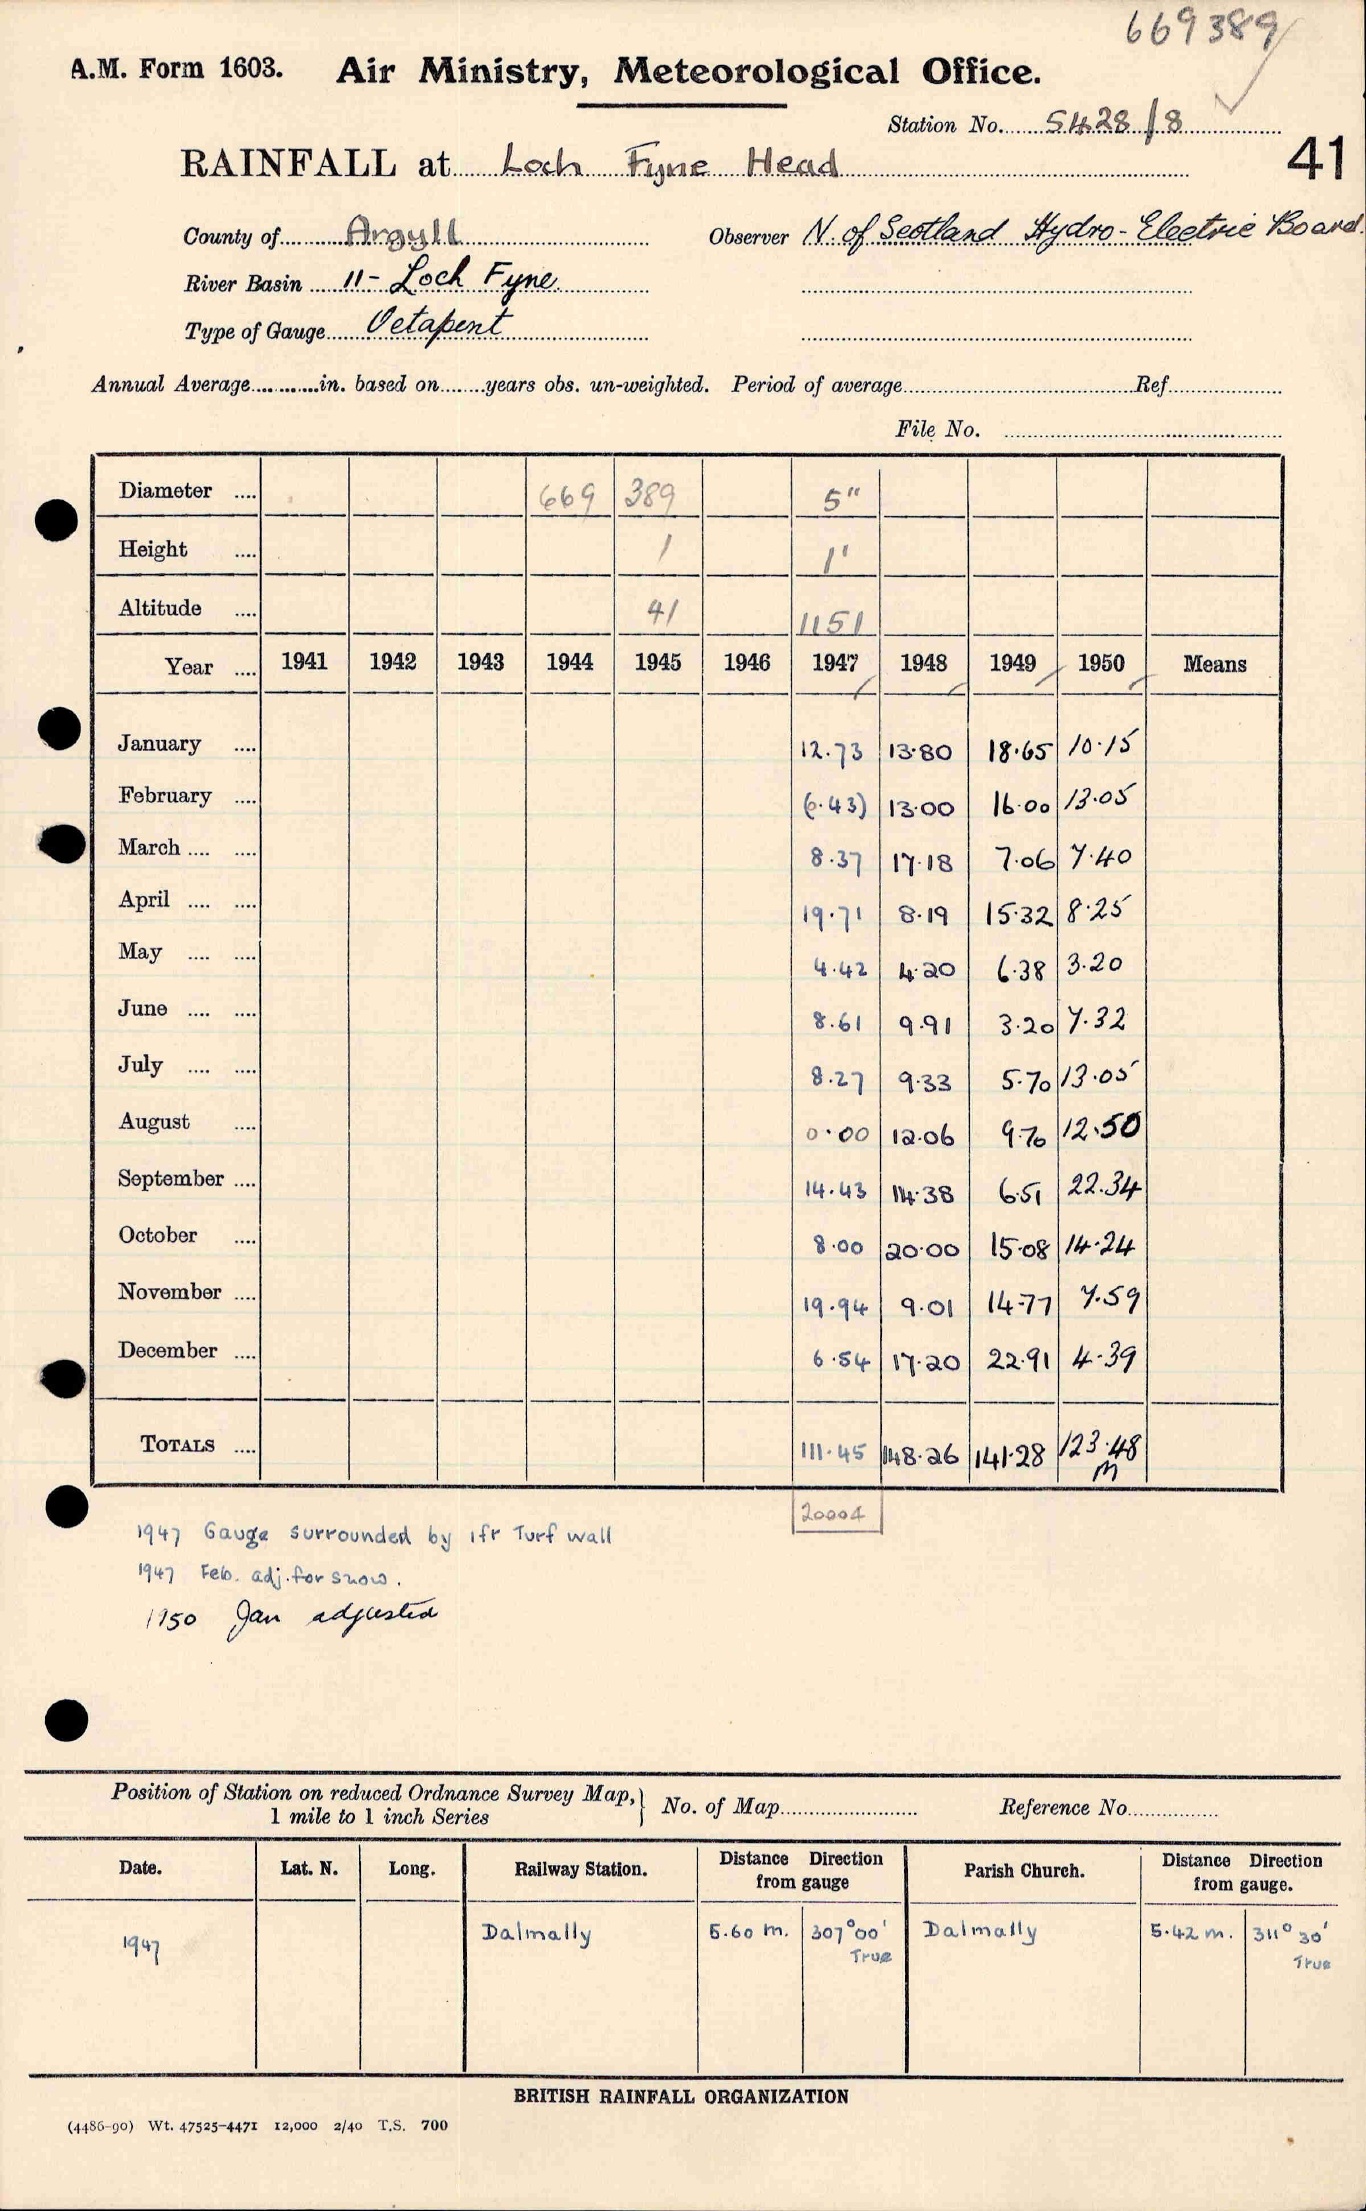 669389
A.M. Form 1603. Air Ministry, Meteorological Office.
Station No. 5428/8
41
RAINFALL at Loch Fyne Head
County of Argyll Observer N. of Scotland Hydro-Electric Board.
River Basin 11- Loch Fyne
Type of Gauge Octapent
Annual Average............in. based on........years obs. un-weighted. Period of average............Ref............
File No. ............
Diameter .... 669 389 5"
Height .... 1 1'
Altitude .... 41 1151
Year .... 1941 1942 1943 1944 1945 1946 1947 1948 1949 1950 Means
January .... 12.73 13.80 18.65 10.15
February .... (6.43) 13.00 16.00 13.05
March .... .... 8.37 17.18 7.06 7.40
April .... .... 19.71 8.19 15.32 8.25
May .... .... 4.42 4.20 6.38 3.20
June .... .... 8.61 9.91 3.20 7.32
July .... .... 8.27 9.33 5.70 13.05
August .... 0.00 12.06 9.70 12.50
September .... 14.43 14.38 6.51 22.34
October .... 8.00 20.00 15.08 14.24
November .... 19.94 9.01 14.77 7.59
December .... 6.54 17.20 22.91 4.39
TOTALS .... 111.45 148.26 141.28 123.48
m
20004
1947 Gauge surrounded by 1ft Turf wall
1947 Feb. adj. for snow.
1950 Jan adjusted
Position of Station on reduced Ordnance Survey Map, 1 mile to 1 inch Series } No. of Map............ Reference No............
Date. Lat. N. Long. Railway Station. Distance Direction from gauge Parish Church. Distance Direction from gauge.
1947 Dalmally 5.60 m. 307°00' True Dalmally 5.42 m. 311° 30' True
BRITISH RAINFALL ORGANIZATION
(4486-90) Wt. 47525-4471 12,000 2/40 T.S. 700